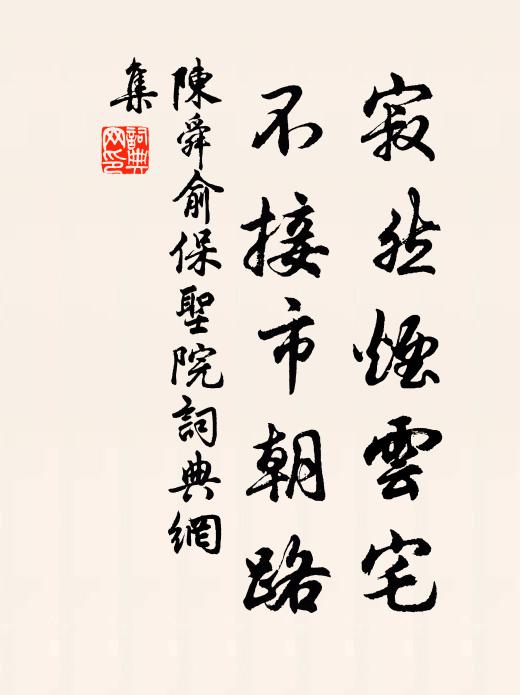 寂然煙雲宅
不接市朝路
陳舜俞保聖院詞典網
集
詞典網印